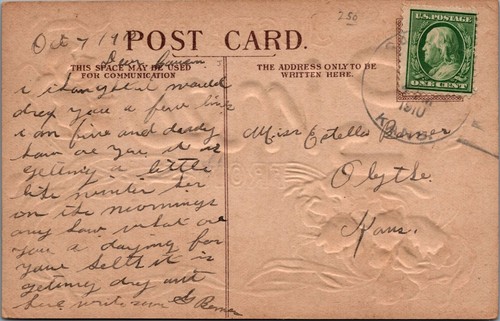 Oct 7/19
250
POST CARD.
THIS SPACE MAY BE USED
FOR COMMUNICATION
THE ADDRESS ONLY TO BE
WRITTEN HERE.
U.S. POSTAGE
ONE CENT
1910
Dear
i thought i would
drop you a few line
i am fine and dandy
how are you it is
getting a little
like winter her
on the mornings
any how what are
you a doying for
your self it is
getting dry out
here write soon
Miss Estella
Olythe.
Kans.